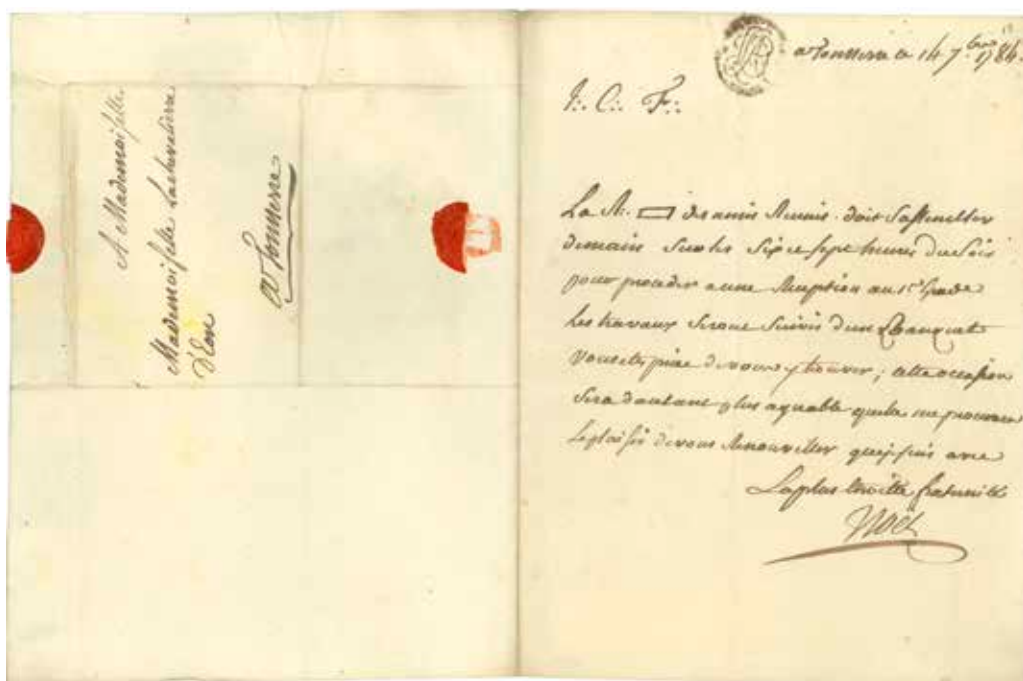 A Mademoiselle
Mademoiselle La chevaliere
d'Eon
a Tonnerre
a Tonnerre ce 14 7bre 1784.
T∴ C∴ F∴
La R∴ ▭ des amis Reunis doit s'assembler
demain sur les six a sept heures du soir
pour proceder a une Reception au 1er Grade
Les travaux seront suivis d'un Banquet
vous etes priée de vous y trouver; cette occasion
sera d'autant plus agreable qu'elle me procurera
le plaisir de vous Renouveller que je suis avec
La plus étroitte fraternité
Noël